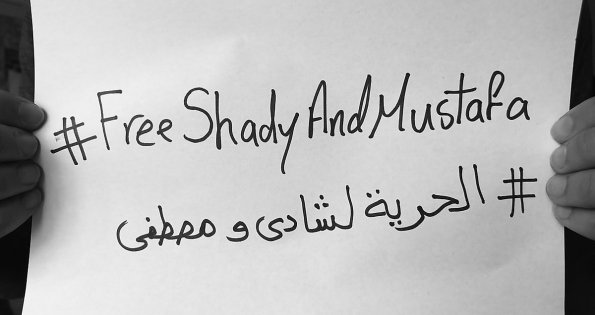 #FreeShadyAndMustafa
# الحرية لشادى و مصطفى